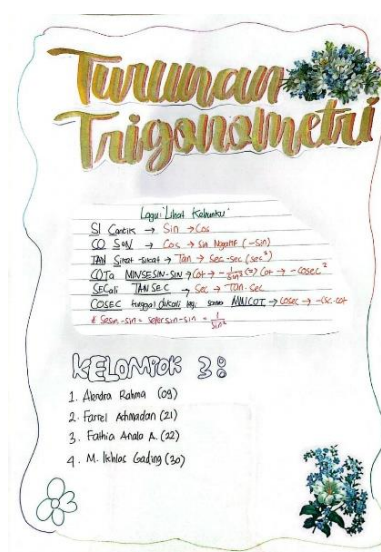 Turunan
Trigonometri
Lagu: "Lihat Kebunku"
SI Cantik → Sin → Cos
CO SeN → Cos → Sin Negatif (-Sin)
TAN Sikat-sikat → Tan → Sec.sec (sec²)
COTa MINSESIN-SIN → Cot → -1/sin² (=) Cot → -Cosec²
SECali TAN SEC → Sec → Tan.Sec
COSEC tunggal dikali lagi sama MINCOT → cosec → -csc.cot
* Sesin-sin = seper sin-sin = 1/sin²
KELOMPOK 3:
1. Alendra Rahma (09)
2. Farrel Achmadan (21)
3. Fathia Analo A. (22)
4. M. Ikhlas Gading (30)